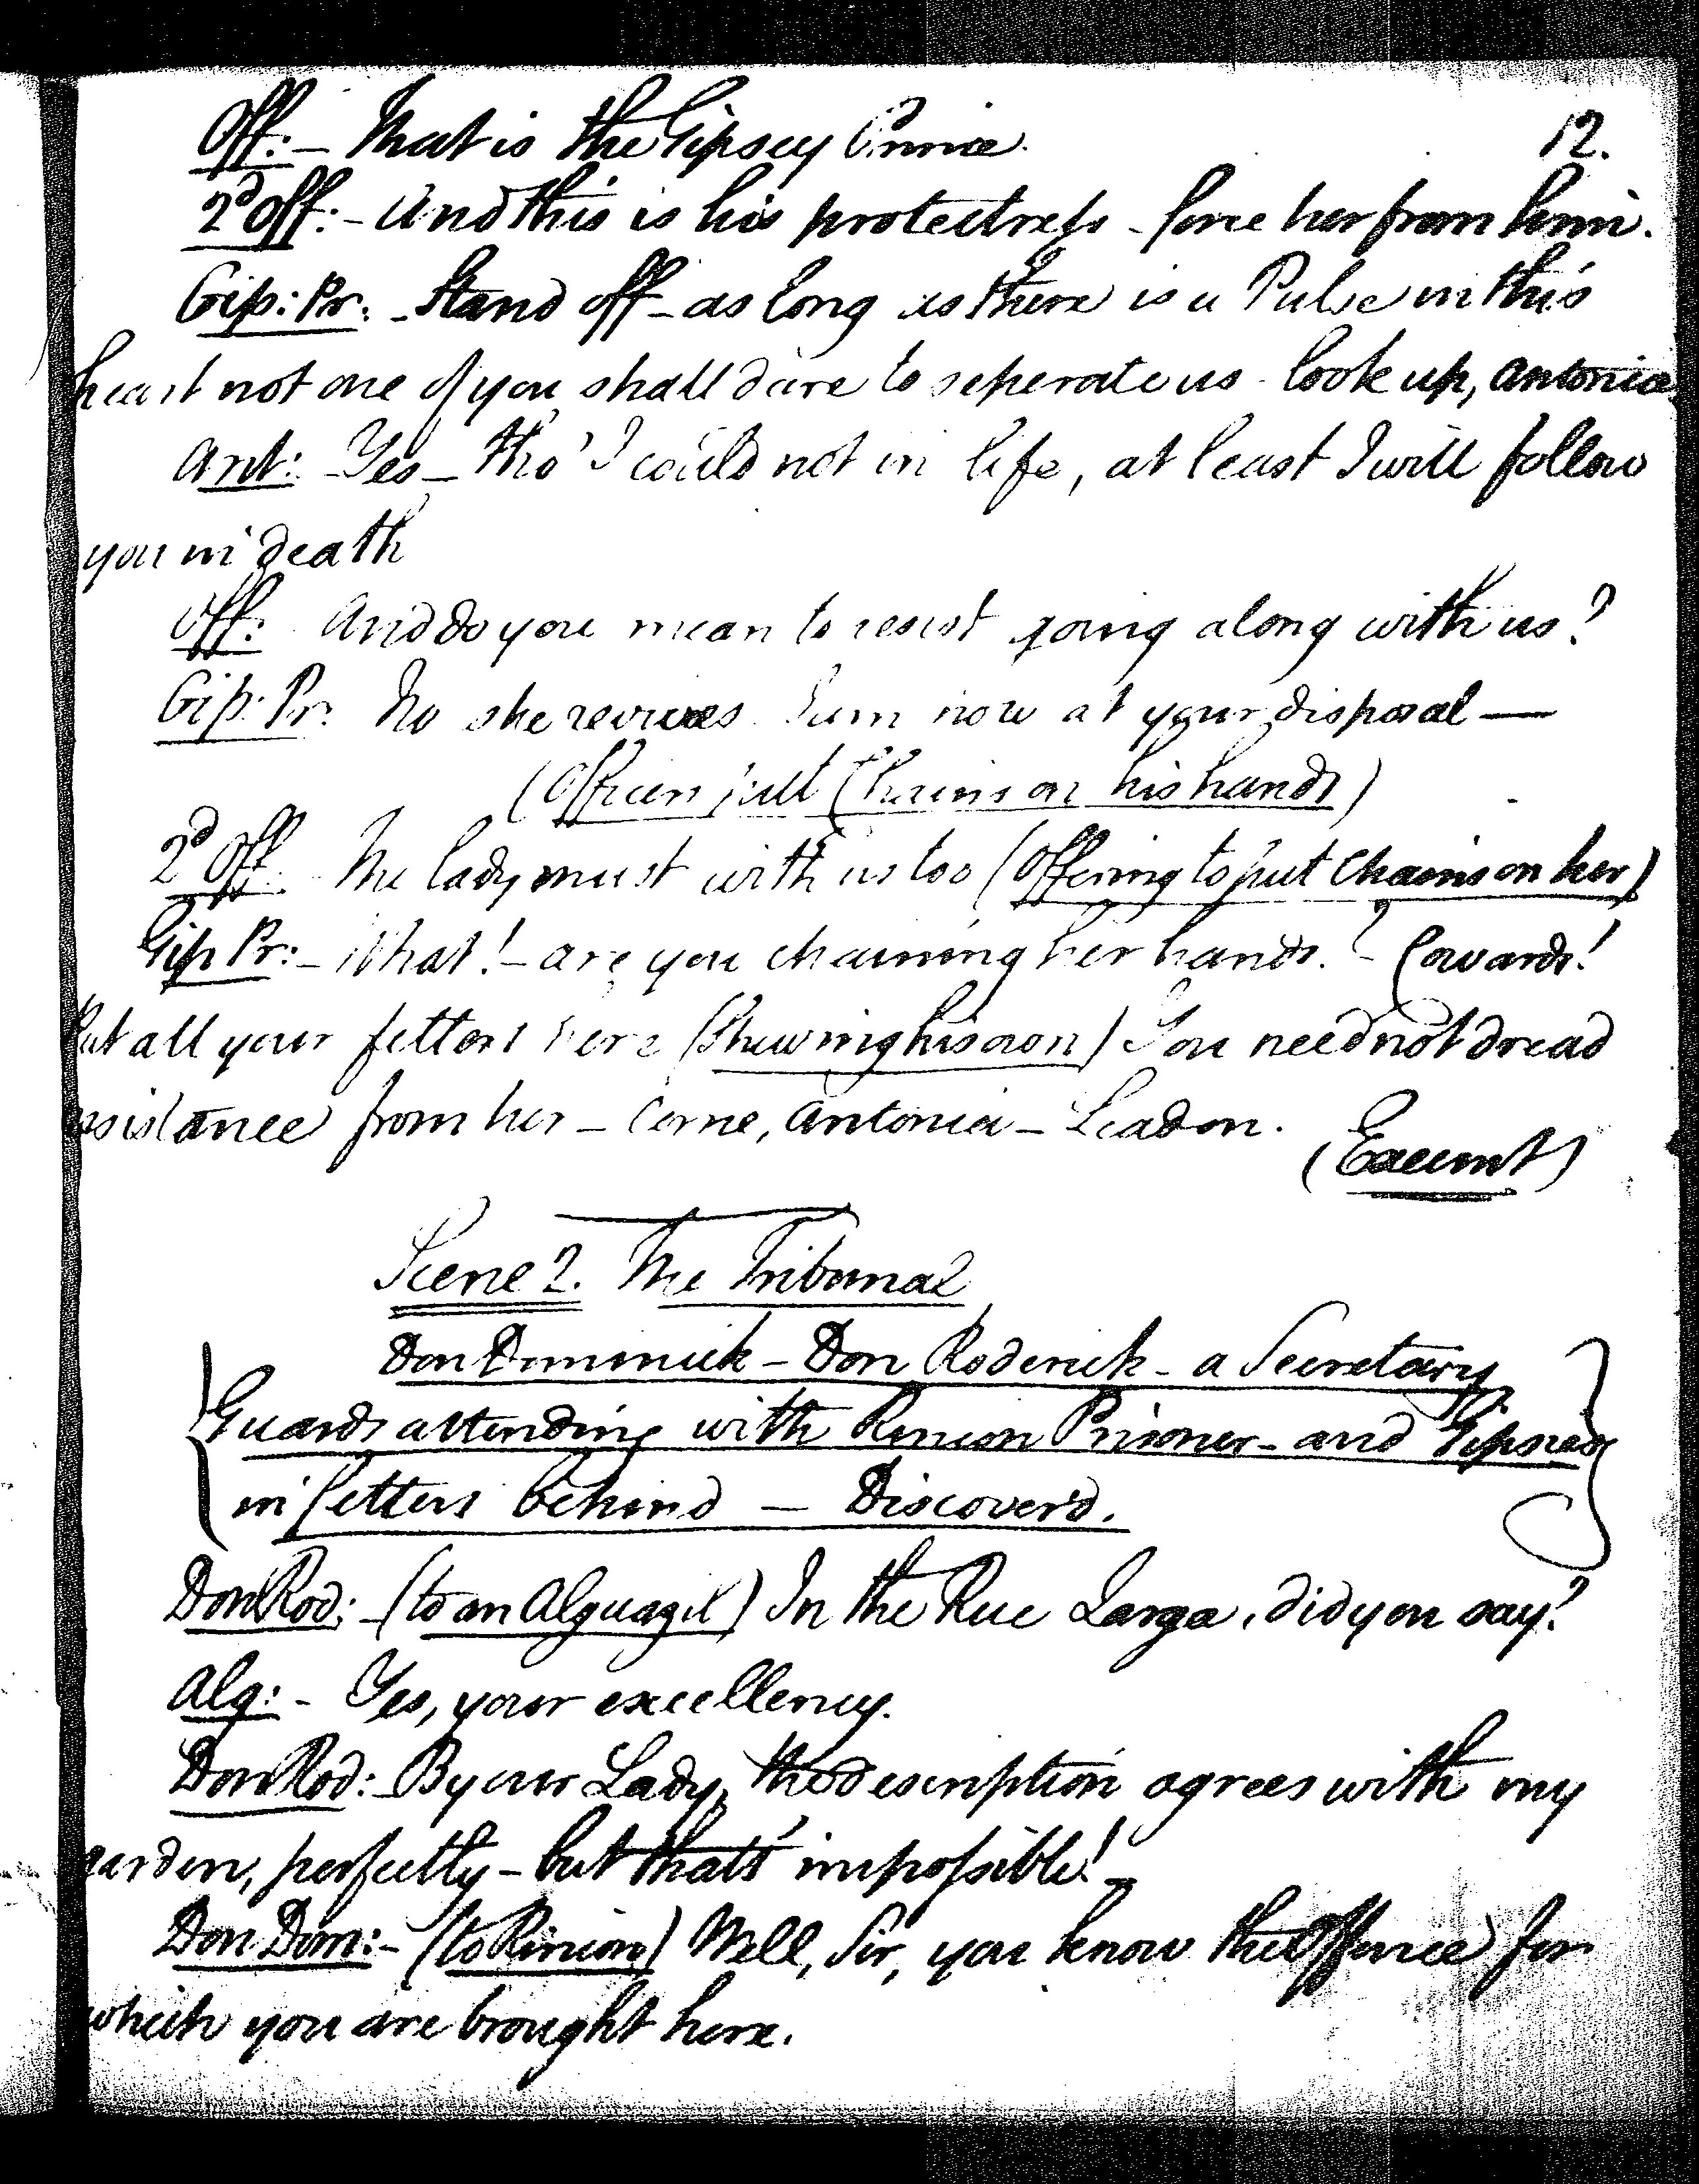 Off: - That is the Gipsey Prince.
12.
2d Off: - And this is his protectress - force her from him.
Gip: Pr: - Stand off - as long as there is a Pulse in this
heart not one of you shall dare to seperate us - look up, Antonia
Ant: - Yes - tho' I could not in life, at least I will follow
you in death
Off: And do you mean to resist going along with us?
Gip: Pr: No she revives I am now at your disposal —
(Officers put Chains on his hands)
2d Off: The lady must with us too (Offering to put Chains on her)
Gip Pr: - What! - are you chaining her hands? - Cowards!
Put all your fetters here (Shewing his own) You need not dread
resistance from her - Come, Antonia - Lead on.
(Exeunt)
Scene 2. The Tribunal
Don Dominick - Don Roderick - a Secretary
Guards attending with Rincon Prisoner - and Gipsies
in fetters behind — Discover'd.
Don Rod: - (to an Alguazil) In the Rue Larga, did you say?
Alg: - Yes, your excellency.
Don Rod: - By our Lady, the description agrees with my
garden, perfectly - but that's impossible! -
Don Dom: - (to Rincon) Well, Sir, you know the Offence for
which you are brought here.